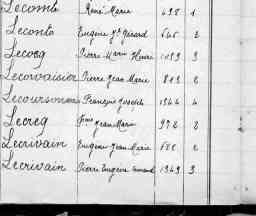 Lecomte René Marie 498 1
Leconte Eugène Gérard 2
Lecoq Pierre Marie 1089 3
Lecorvaisier Pierre Jean Marie 813 2
Lecoursonnois François Joseph 4
Lecreq Jean Marie 972 2
Lecrivain Eugène Jean Marie 2
Lecrivain Pierre Eugène 1349 3